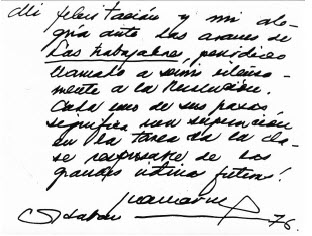 Mi felicitación y mi ale-
gría ante los avances de
Los Trabajadores, periódico
llamado a servir
mente a la Revolución.
Cada uno de sus pasos
significa una superación
en la tarea de la cla-
se responsable de las
grandes futuras!
76